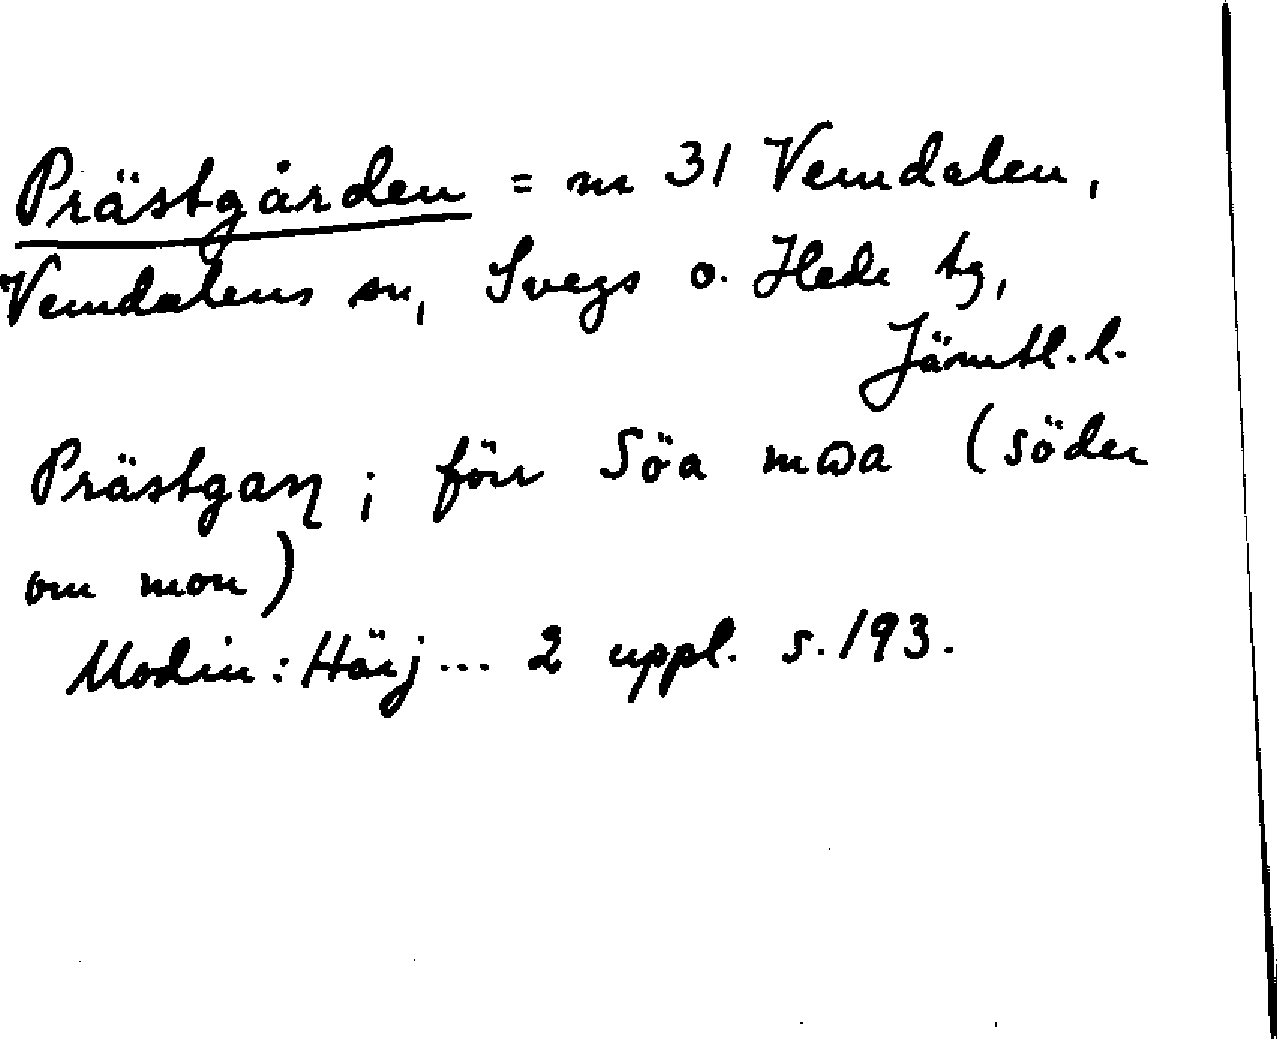 Prästgården = nr 31 Vemdalen,
Vemdalens sn, Svegs o. Hede tg,
Jämtl. l.
Prästgaɳ; förr Söa mωa (söder
om mon)
Modin: Härj... 2 uppl. s. 193.